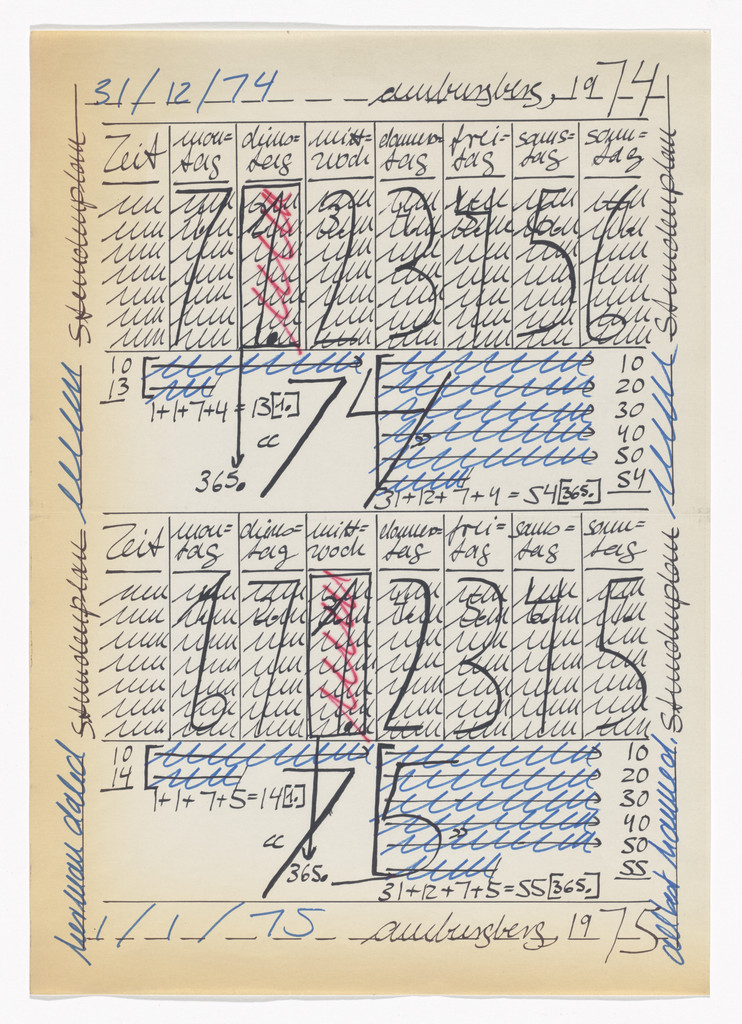 31/12/74 amburgberg, 1974
Zeit mon=tag diens=tag mitt=woch donners=tag frei=tag sams=tag sonn=tag
7 1. 2 3 4 5 6
2 3 4 5 6
Stundenplan
Stundenplan
10
13
1+1+7+4=13[1.]
«
365.
74
»
10
20
30
40
50
54
31+12+7+4=54[365.]
Zeit mon=tag diens=tag mitt=woch donners=tag frei=tag sams=tag sonn=tag
6 7 1. 2 3 4 5
1 2 3 4 5 6
Stundenplan
Stundenplan
10
14
1+1+7+5=14[1.]
«
365.
75
»
10
20
30
40
50
55
31+12+7+5=55[365.]
hanne darboven
1/1/75 amburgberg, 1975